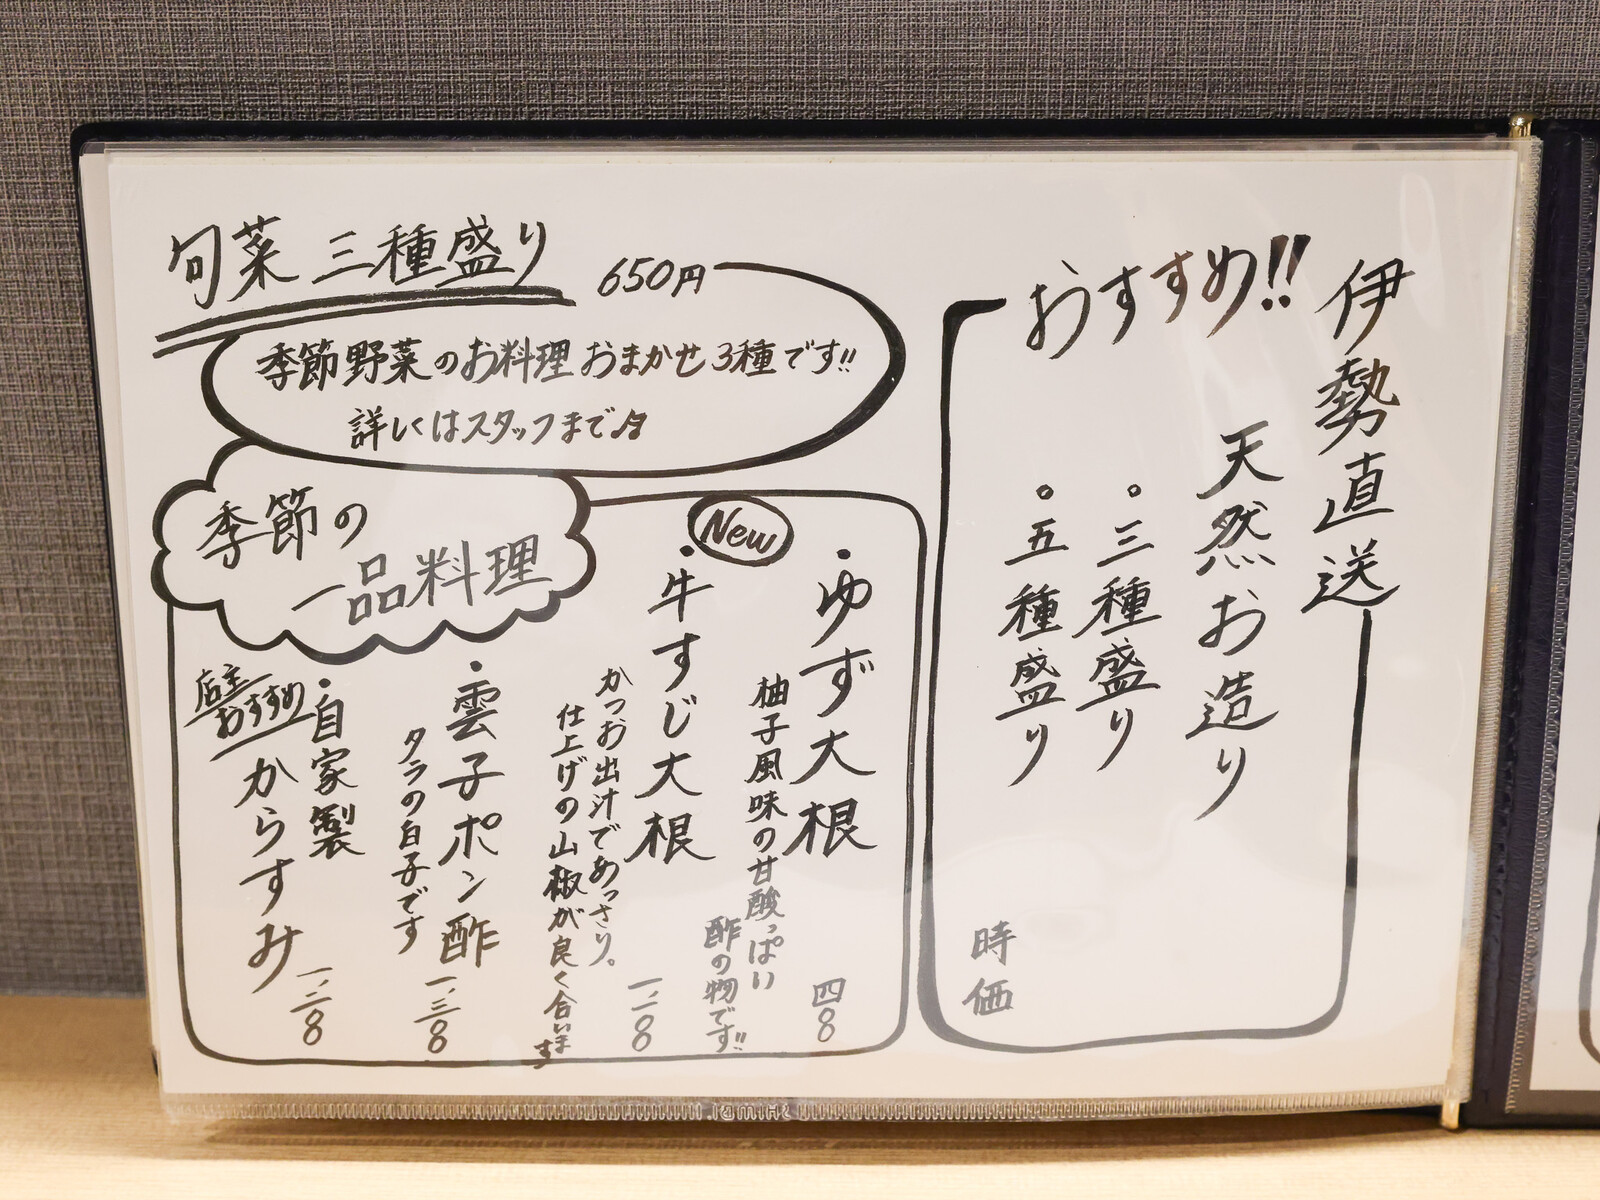 伊勢直送
おすすめ!!
天然お造り
。三種盛り
。五種盛り
時価
旬菜 三種盛り 650円
季節野菜のお料理 おまかせ3種です!!
詳しくはスタッフまで♬
季節の
一品料理
・ゆず大根 四80
柚子風味の甘酸っぱい
酢の物です!!
New
・牛すじ大根 一、二80
かつお出汁であっさり。
仕上げの山椒が良く合います
・雲子ポン酢 一、三80
タラの白子です
・自家製
からすみ 一、二80
店主
おすすめ
SHIMBI